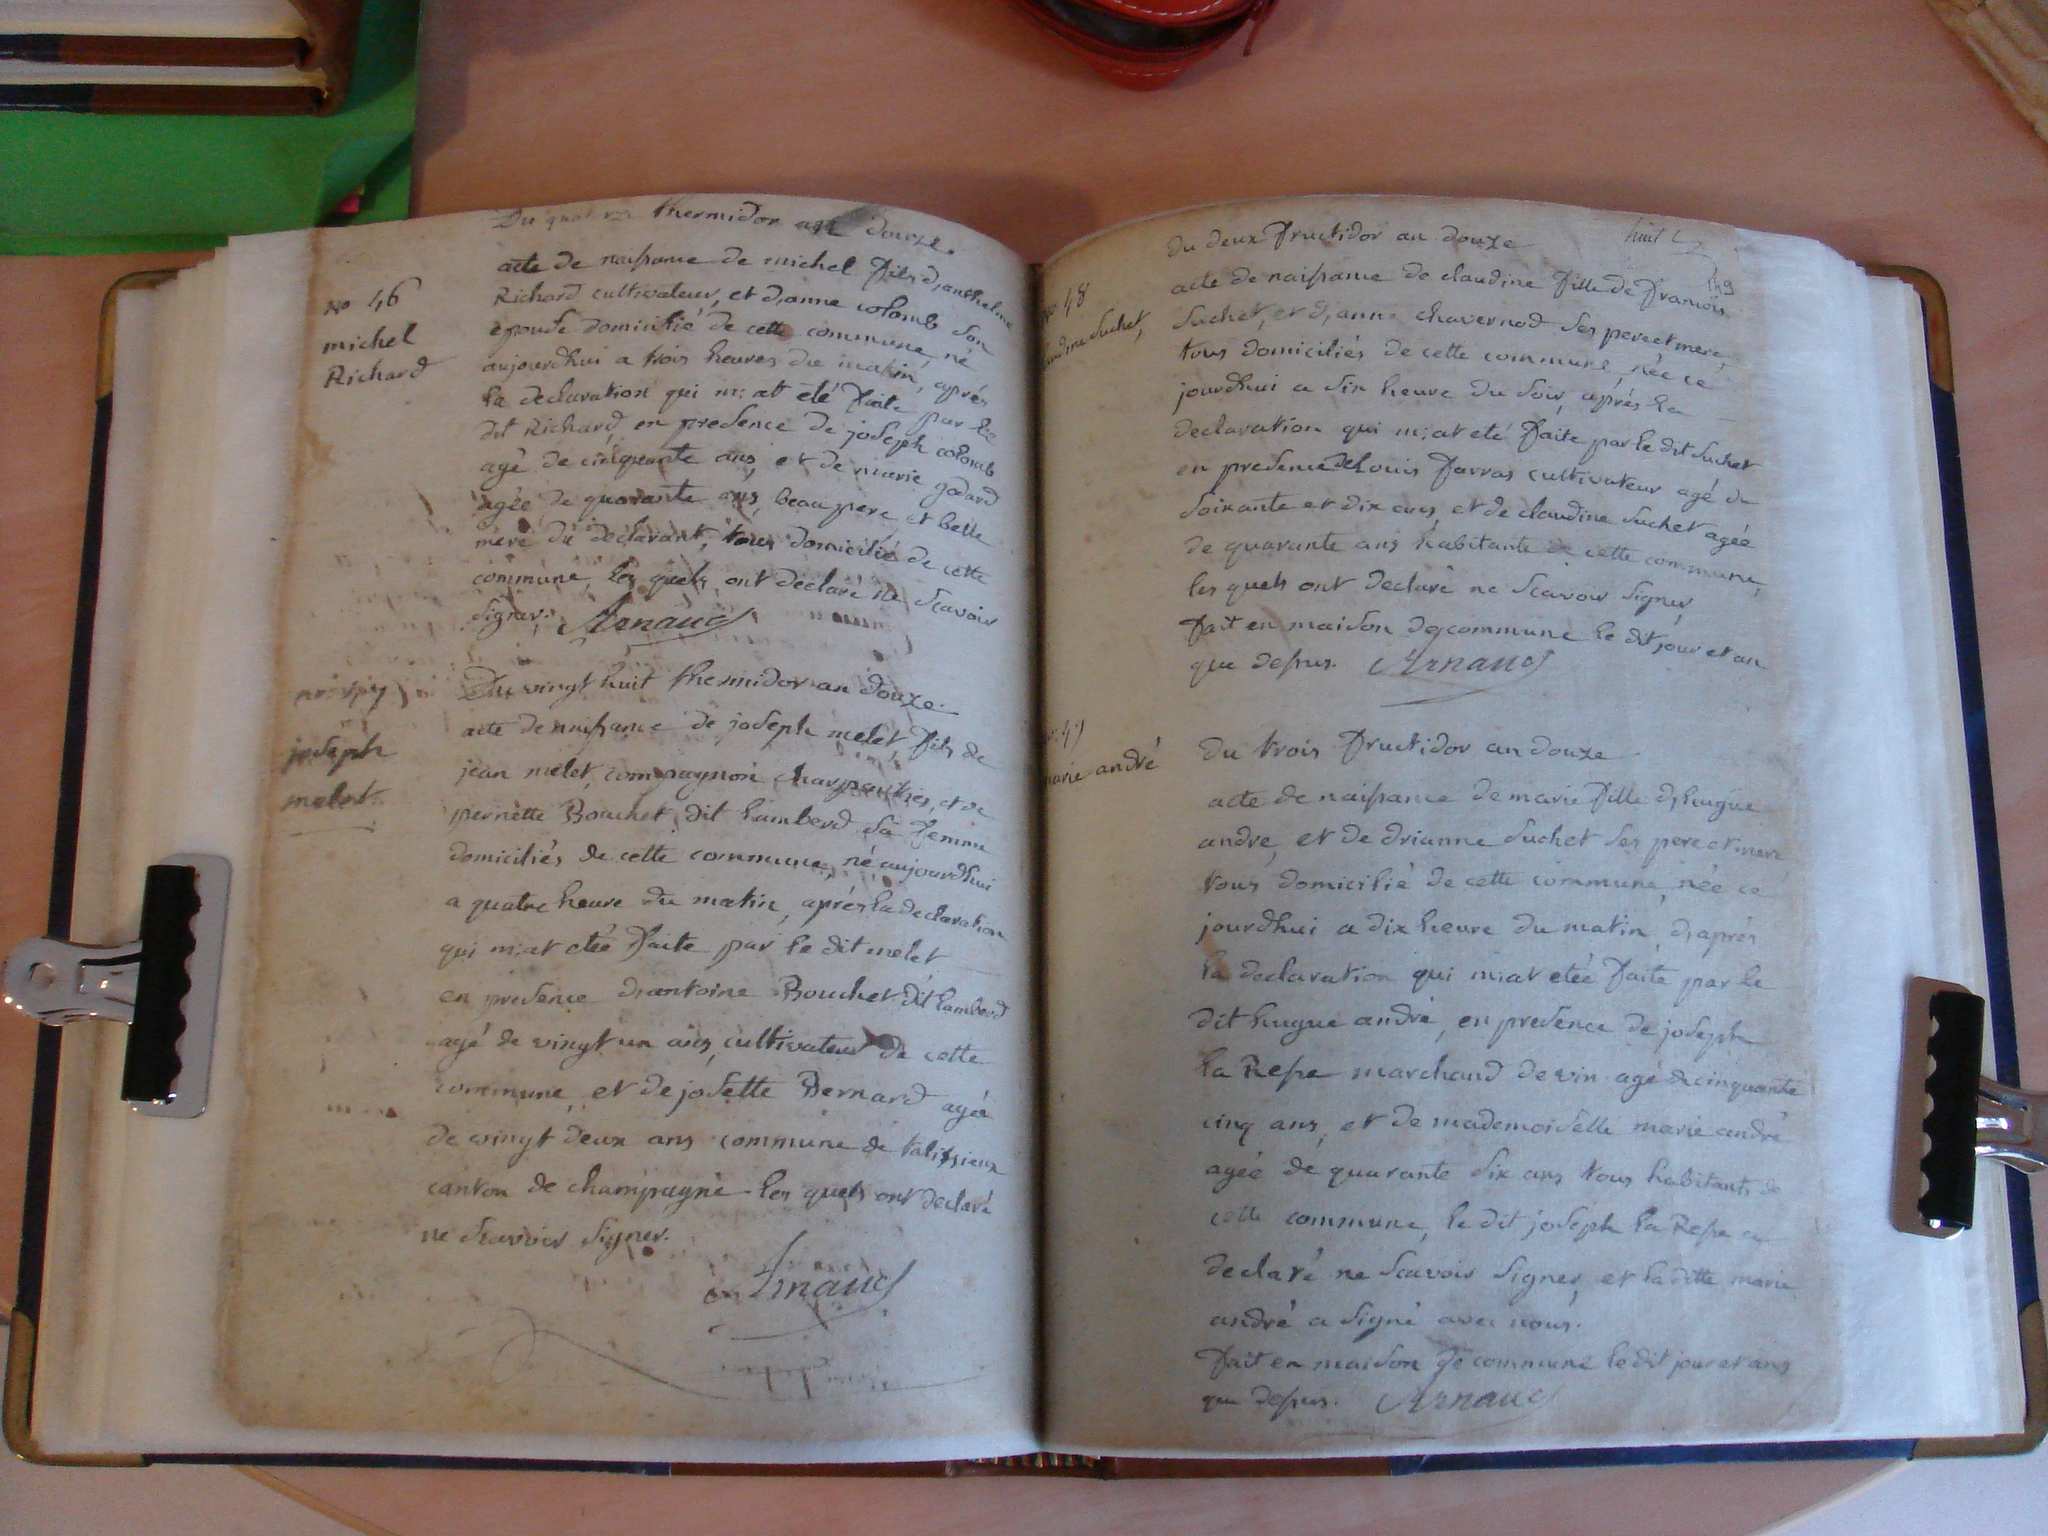 Du quatorze thermidor an douze.
No 46
michel
Richard
acte de naissance de michel fils d,anthelme
Richard cultivateur, et d,anne colomb son
epouse domicilié de cette commune, né
aujourdhui a trois heures du matin, aprés
la declaration qui m:at été faite par le
dit Richard, en presence de joseph colomb
agé de cinquante ans, et de marie godard
agée de quarante ans, beau pere et belle
mere du declarant, tous domicilié de cette
commune, les quels ont declaré ne scavoir
signer. Arnaud
joseph
melet
Du vingt huit thermidor an douze.
acte de naissance de joseph melet, fils de
jean melet, compagnon charpentier, et de
pernette Bouchet, dit lamberd sa femme
domiciliés de cette commune, né aujourdhui
a quatre heure du matin, aprés la declaration
qui m:at etée faite par le dit melet
en presence d,antoine Bouchet dit lamberd
agé de vingt un ans, cultivateur de cette
commune, et de josette Bernard agée
de vingt deux ans commune de talissieux
canton de champagne les quels ont declaré
ne scavoir signer.
Arnaud
149
du deux fructidor an douze
No 48
Suchet,
acte de naissance de claudine fille de francois
Suchet, et d,anne chavernod ses pere et mere,
tous domiciliés de cette commune, née ce
jourdhui a six heure du soir, aprés la
declaration qui m:at eté faite par le dit Suchet
en presence de Louis farras cultivateur agé de
soixante et dix ans, et de claudine Suchet agée
de quarante ans habitante de cette commune,
les quels ont declaré ne scavoir signer,
fait en maison de commune le dit jour et an
que dessus. Arnaud
marie andré
du trois fructidor an douze
acte de naissance de marie fille d,hugue
andre, et de drianne Suchet ses pere et mere
tous domicilié de cette commune, née ce
jourdhui a dix heure du matin, d,aprés
la declaration qui m:at etée faite par le
dit hugue andré, en presence de joseph
la Resse marchand de vin agé de cinquante
cinq ans, et de mademoiselle marie andré
agée de quarante six ans tous habitants de
cette commune, le dit joseph la Resse a
declaré ne scavoir signer, et la ditte marie
andré a signé avec nous.
fait en maison de commune le dit jour et ans
que dessus. Arnaud